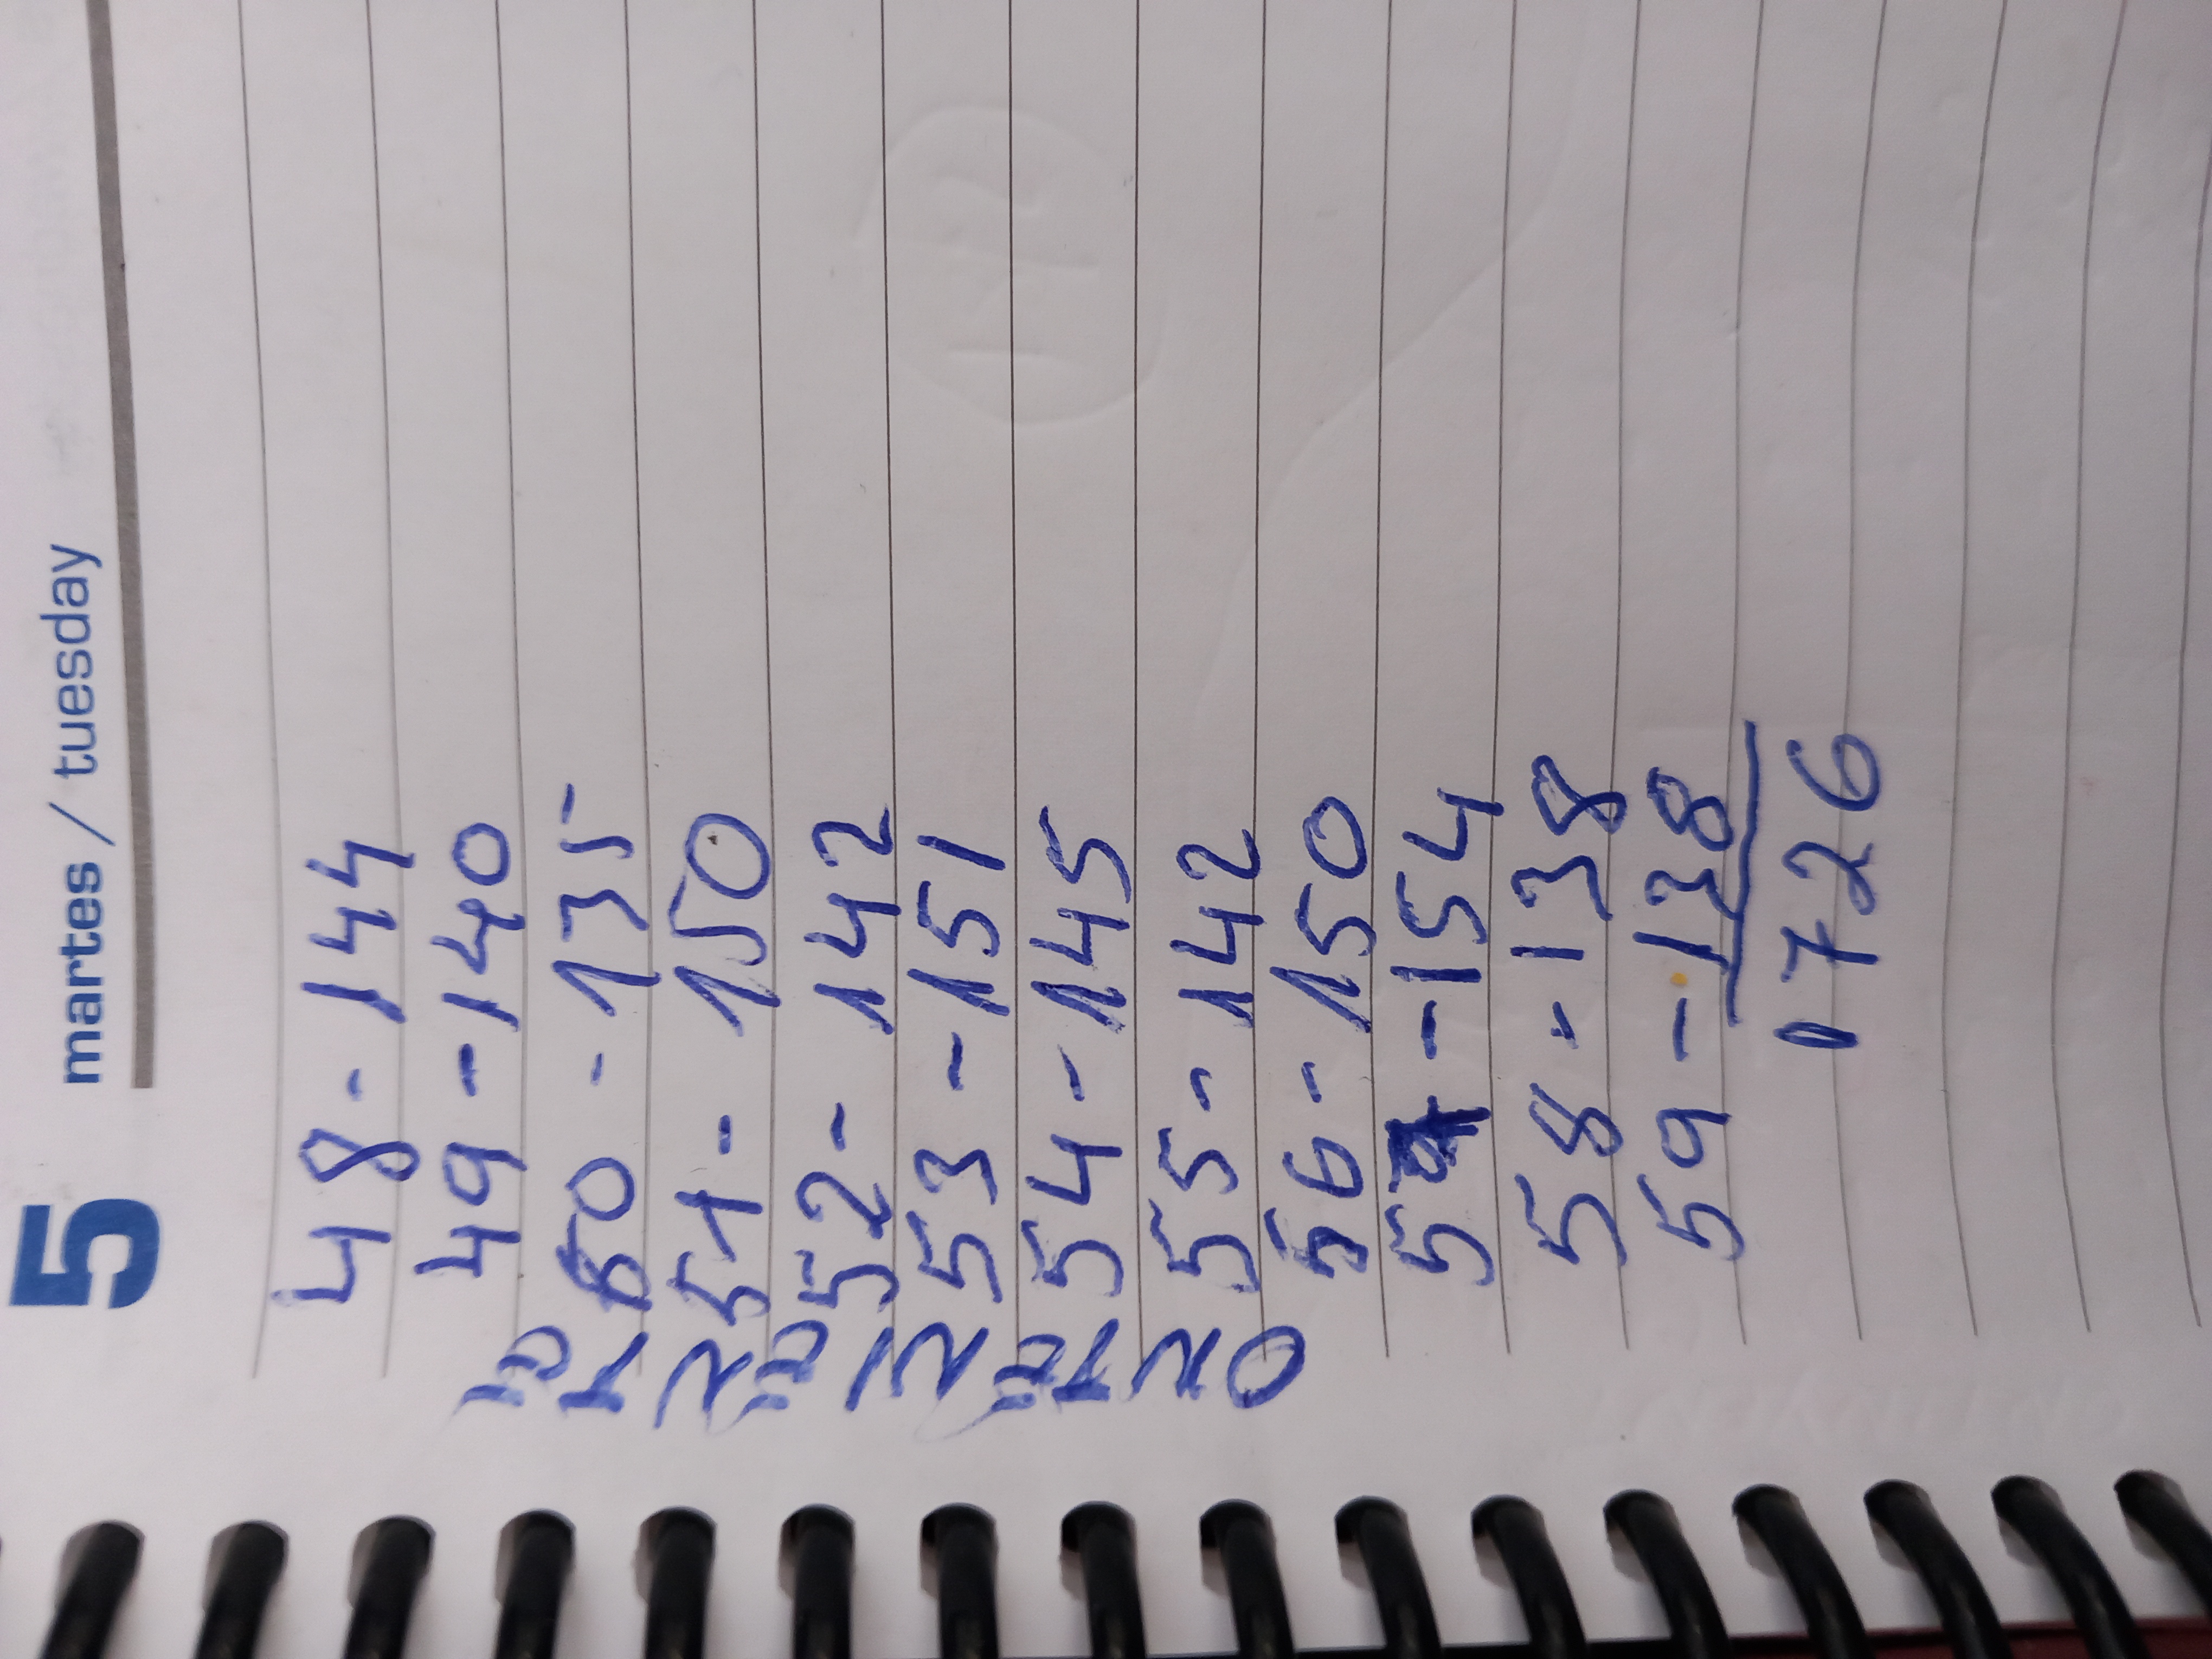 5 martes / tuesday
48 - 144
49 - 140
50 - 135
51 - 150
52 - 142
53 - 151
54 - 145
55 - 142
56 - 150
57 - 154
58 - 138
59 - 138
1726